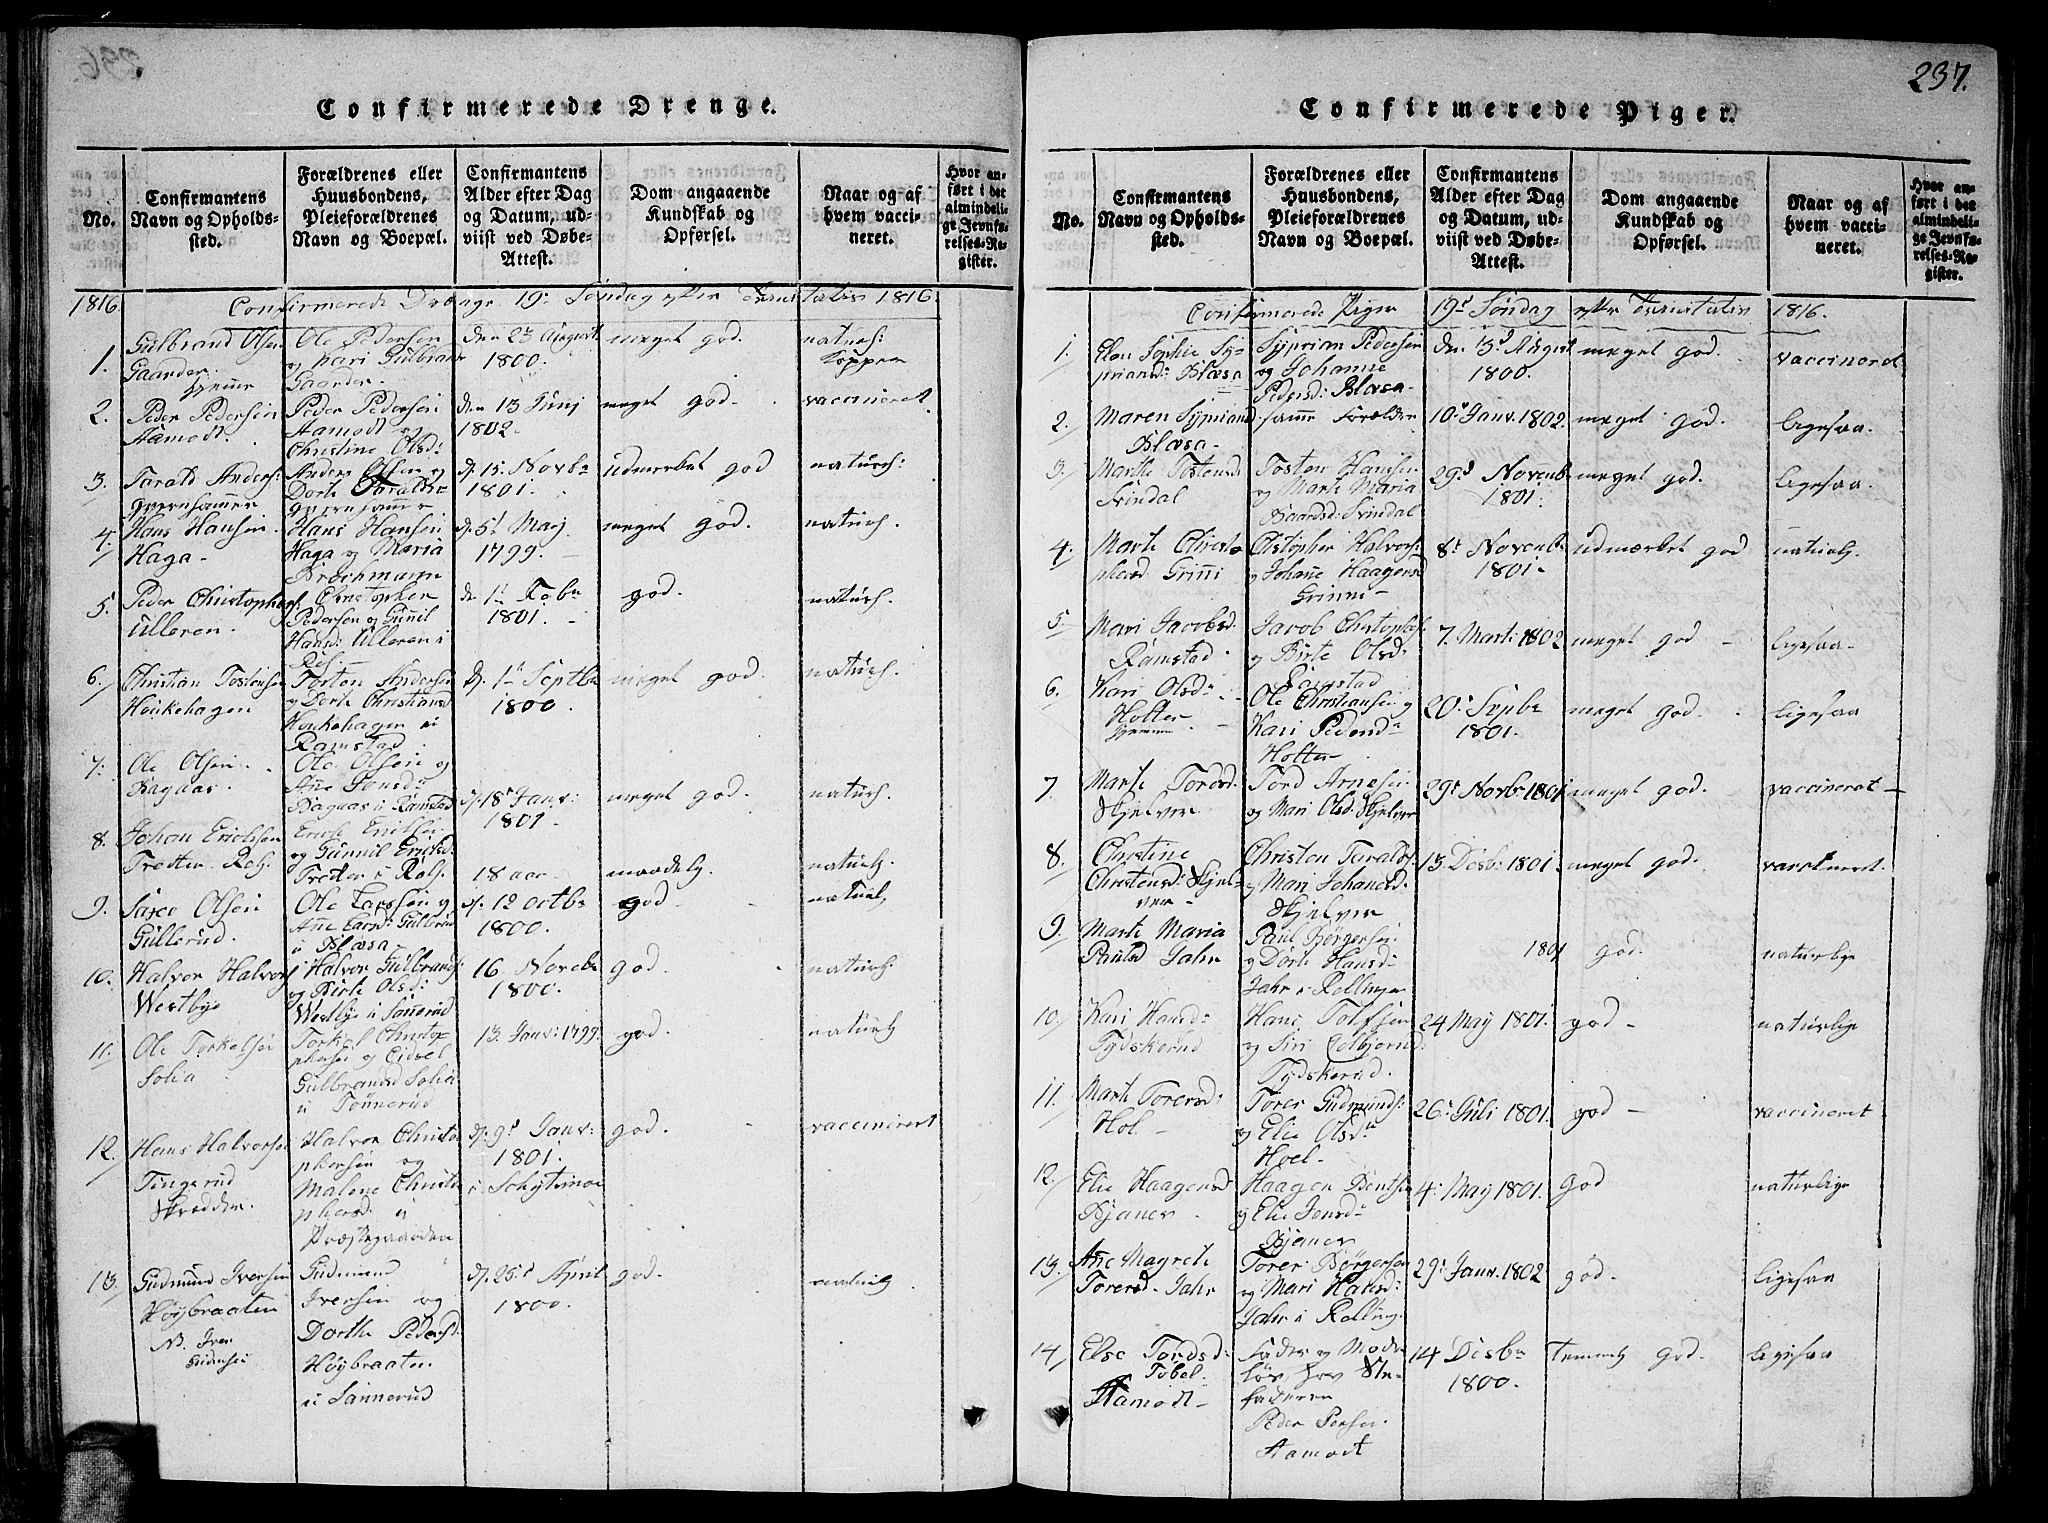 237.
Confirmerede Drenge.
No.
Confirmantens
Navn og Opholds-
sted.
Forældrenes eller
Huusbondens,
Pleieforældrenes
Navn og Boepæl.
Confirmantens
Alder efter Dag
og Datum, ud-
viist ved Døbe-
Attest.
Dom angaaende
Kundskab og
Opførsel.
Naar og af
hvem vacci-
neret.
Hvor an-
ført i det
almindeli-
ge Jevnfø-
relses-Re-
gister.
1816
Confirmerede Drenge 19de Søndag efter Trinitatis 1816.
1.
Gulbrand Olsen
Gaarder
Ole Pedersen
og Kari Gulbran
Gaarder.
den 23 August
1800.
meget god.
naturs:
Kopper
2.
Peder Pedersen
Aamodt.
Peder Pedersen
Aamodt og
Christine Olsd:
den 13 Junj
1802
meget god.
vaccineret
3.
Tarald Anders:
Anders Olsen og
Dorte Taralds
d. 15. Novbr
1801.
udmerket god
naturs:
4.
Hans Hansen
Haga
Hans Hansen
Haga og Maria
Brochmann
d. 5t May
1799.
meget god.
naturs.
5.
Peder Christophers:
Ulleren.
Christopher
Pedersen og Gunil
Hansd: Ulleren i
d. 1st Febr
1801.
god.
naturs.
6.
Christian Tostensen
Honkehagen
Torsten Andersen
og Dorte Christiansd
Honkehagen i
Ramstad
d. 1st Septbr
1800.
meget god.
naturs.
7.
Ole Olsen
Bagaas.
Ole Olsen og
Ane Jonsd:
Bagaas i Ramstad
d. 18t Janv:
1801
meget god.
naturs.
8.
Johan Erichsen
Tretten Rols.
og Gunnil Ericksd:
Tretten i Rols.
18 aar
maadelig
naturlg.
9.
Olsen
Gullerud.
Ole Larssen og
Ane Larsd: Gullerud
i Blæsa
d. 12 octbr
1800.
god
naturlg
10.
Halvor Halvors
Westbye
Halvor Gulbrands:
og Birte Olsd:
Westbye i Sannerud
16. Novbr
1800.
god.
naturs.
11.
Ole Torkelsen
Solia
Torkel Christo-
phersen og Eidsel
Gulbrandsd Solia
i Tonnerud
13. Janv: 1799.
god.
naturlg
12.
Hans Halvorsen
Tingerud
Skrædder.
Halvor Christo
phersen og
Malene Christo
phersd: i
Præstegaarden
d. 9d Janv:
1801.
god.
vaccineret
13.
Gudmund Iversen
Høybraaten
N. Iver
Gudmund
Iversen og
Dorthe Pedersd:
Høybraaten
i Sannerud
d. 25d April
1800.
god.
naturlg
Confirmerede Piger.
No.
Confirmantens
Navn og Opholds-
sted.
Forældrenes eller
Huusbondens,
Pleieforældrenes
Navn og Boepæl.
Confirmantens
Alder efter Dag
og Datum, ud-
viist ved Døbe-
Attest.
Dom angaaende
Kundskab og
Opførsel.
Naar og af
hvem vacci-
neret.
Hvor an-
ført i det
almindeli-
ge Jevnfø-
relses-Re-
gister.
Confirmerede Piger 19d Søndag efter Trinitatis 1816.
1.
Elen Sophie Sy-
priansd: Blæsa
Syprian Pedersen
og Johanne
Pedersd: Blæsa
den 3d August
1800.
meget god.
vaccineret
2.
Maren Sypriand
Blæsa
samme Forældre
10d Janv. 1802.
meget god.
ligesaa.
3.
Marthe Tostensd:
Svindal
Tosten Hansen
og Marte Maria
Baardsd: Svindal
29d Novenb
1801.
meget god.
ligesaa.
4.
Marte Christo
phersd. Grini
Christopher Halvors:
og Johanne Haagensd
Grinni
8d Novenb
1801.
udmærket god
naturlg.
5.
Mari Jacobsd.
Ramstad.
Jacob Christophs:
og Birte Olsd:
Ramstad
7. Marti 1802
meget god
ligesaa
6.
Kari Olsd:
Holter
Ole Christiansen og
Kari Pedersd:
Holter
20d Sepbr
1801.
meget god.
ligesaa
7.
Marte Tordsd.
Skjelver
Tord Arnesen
og Mari Olsd: Skjelver
29d Novbr 1801
meget god.
vaccineret
8.
Christine
Christensd: Skjel-
ver
Christen Taralds:
og Mari Johansd:
Skjelver
13 Desb: 1801.
meget god.
vaccineret.
9.
Marte Maria
Paulsd Jahr
Paul Børgersen
og Dorte Hansd:
Jahr i Rolling
1801
god.
naturlige
10.
Kari Hansd:
Tydskerud
Hans Tolfsen
og Siri Colbjørnsd:
Tydskerud.
24 May 1801.
god
naturlige
11.
Marte Torersd:
Hol
Torer Gudmunds:
og Elie Olsd:
Hoel
26d Juli 1801.
god
vaccineret
12.
Elie Haagensd
Bjaner
Haagen Bentsen
og Elie Jensd:
Bjaner
4d May 1801.
god
naturlige
13.
Ane Magrete
Torersd. Jahr
Torer Børgersen
og Mari Hansd:
Jahr i Rolling
29d Janv. 1802
god.
ligesaa
14.
Else Tordsd:
Aamodt
Fader og Moder
løs, hos Ste-
faderen
Peder Persen
Aamodt
14 Desbr
1800.
temmelg god.
ligesaa